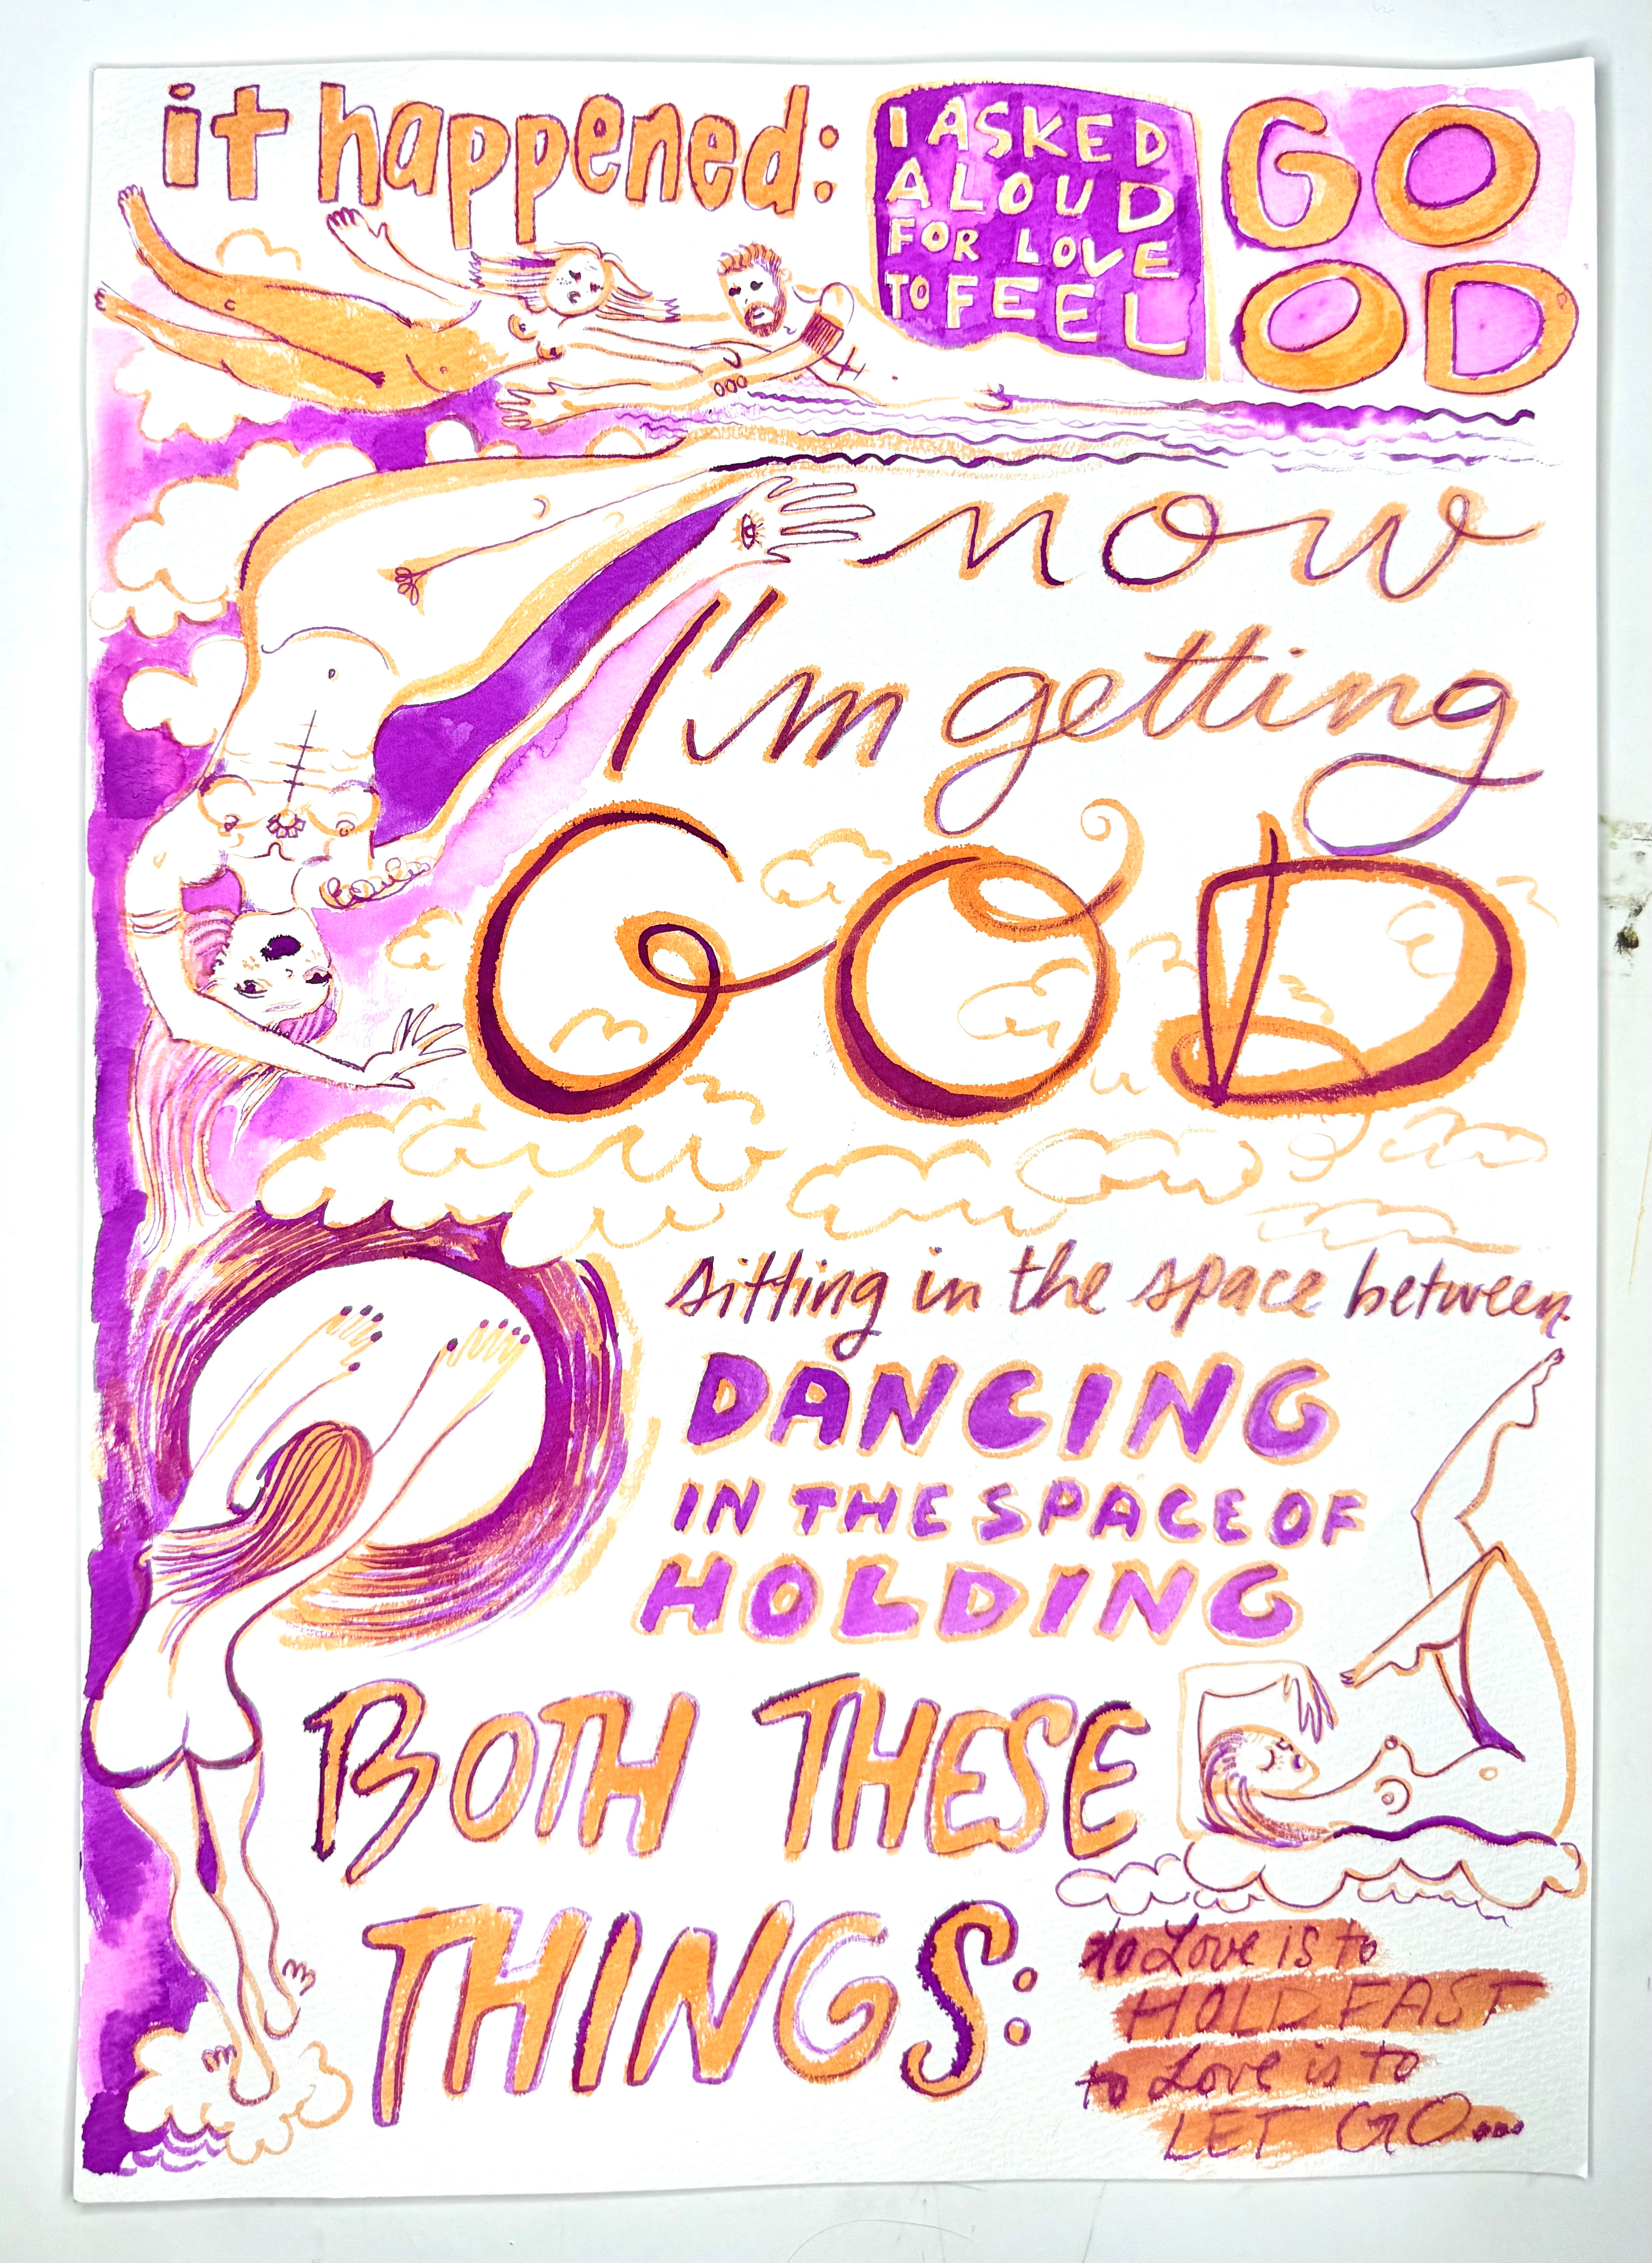 it happened:
I ASKED
ALOUD
FOR LOVE
TO FEEL
GO
OD
now
I'm getting
GOD
sitting in the space between
DANCING
IN THE SPACE OF
HOLDING
BOTH THESE
THINGS:
to Love is to
HOLD FAST
to Love is to
LET GO...